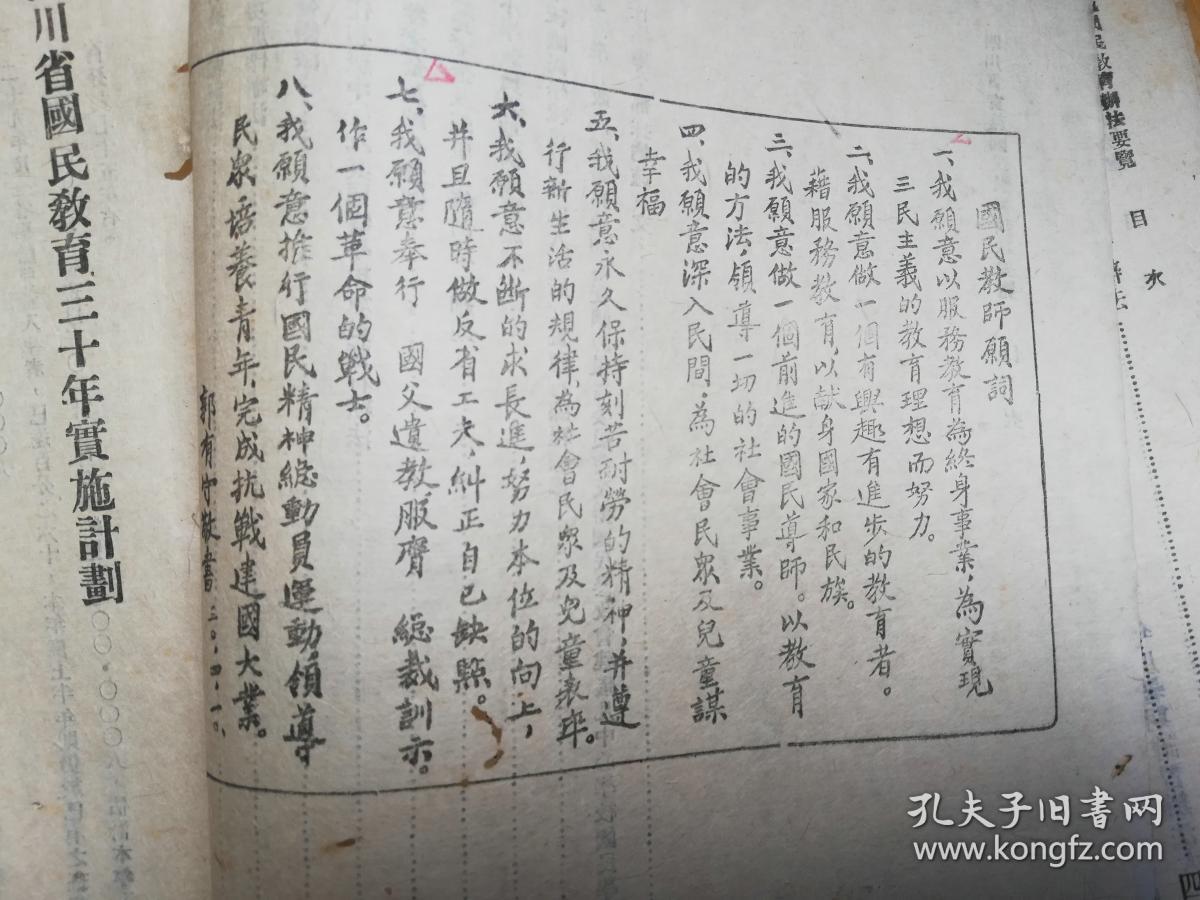 國民教育辦法要覽
目
次
國民教師願詞
一、我願意以服務教育為終身事業，為實現
三民主義的教育理想而努力。
二、我願意做一個有興趣有進步的教育者。
藉服務教育，以獻身國家和民族。
三、我願意做一個前進的國民導師。以教育
的方法，領導一切的社會事業。
四、我願意深入民間，為社會民眾及兒童謀
幸福
五、我願意永久保持刻苦耐勞的精神，并遵
行新生活的規律，為社會民眾及兒童表率。
六、我願意不斷的求長進，努力本位的向上，
并且隨時做反省工夫，糾正自己缺點。
七、我願意奉行 國父遺教服膺 總裁訓示。
作一個革命的戰士。
八、我願意推行國民精神總動員運動，領導
民眾，培養青年，完成抗戰建國大業。
郭有守敬書 三〇、四、一〇、
川省國民教育三十年實施計劃
四
孔夫子旧书网
www.kongfz.com